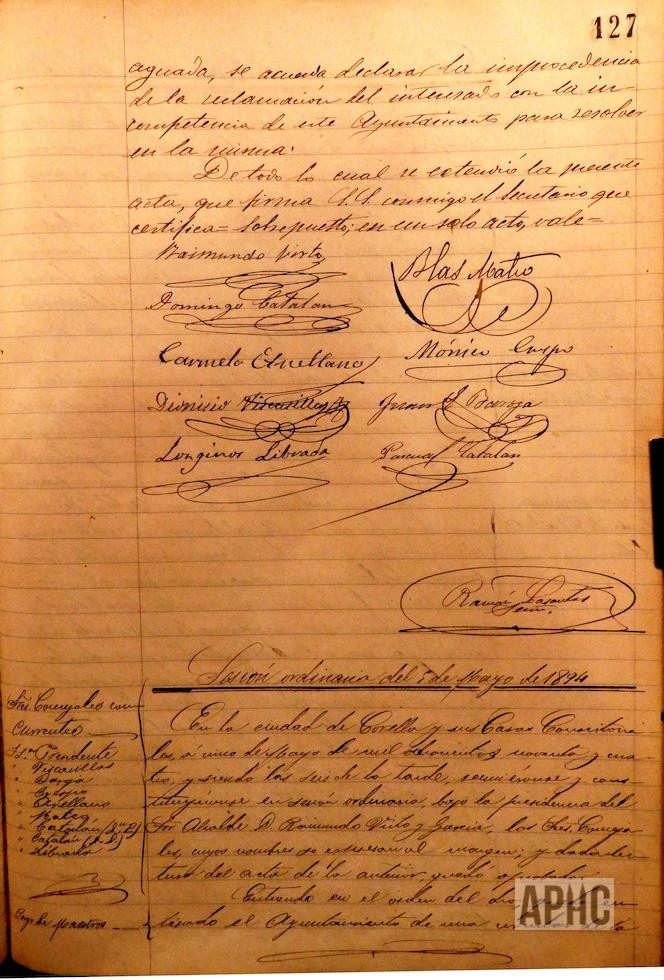 127
aguada, se acuerda declarar la improcedencia
de la reclamación del interesado con la in-
competencia de este Ayuntamiento para resolver
en la misma.
De todo lo cual se estendió la presente
acta, que firma S.S. conmigo el Secretario que
certifica= Sobrepuesto; en un solo acto, vale=
Raimundo Virto
Blas Mateo
Domingo Catalan
Carmelo Arellano
Mónico Crespo
Dionisio Viscasillas
Juan Barga
Longinos Librada
Pascual Catalan
Ramón
Sesión ordinaria del 5 de Mayo de 1894
Sres. Concejales con-
currentes
Sr. Presidente
" Viscasillas
" Barga
" Crespo
" Arellano
" Mateo
" Catalán (D. D.)
" Catalán (D. P.)
" Librada
En la ciudad de Corella y sus Casas Consistoria-
les, á cinco de Mayo de mil ochocientos noventa y cua-
tro, y siendo las seis de la tarde, reuniéronse y cons-
tituyéronse en sesión ordinaria, bajo la presidencia del
Sor Alcalde D. Raimundo Virto y Garcia, los Sres. Conceja-
les, cuyos nombres se espresan al margen; y dada lec-
tura del acta de la anterior, quedó aprobada.
Pago de Maestros
Entrando en el orden del dia, en-
terado el Ayuntamiento de una
APHC